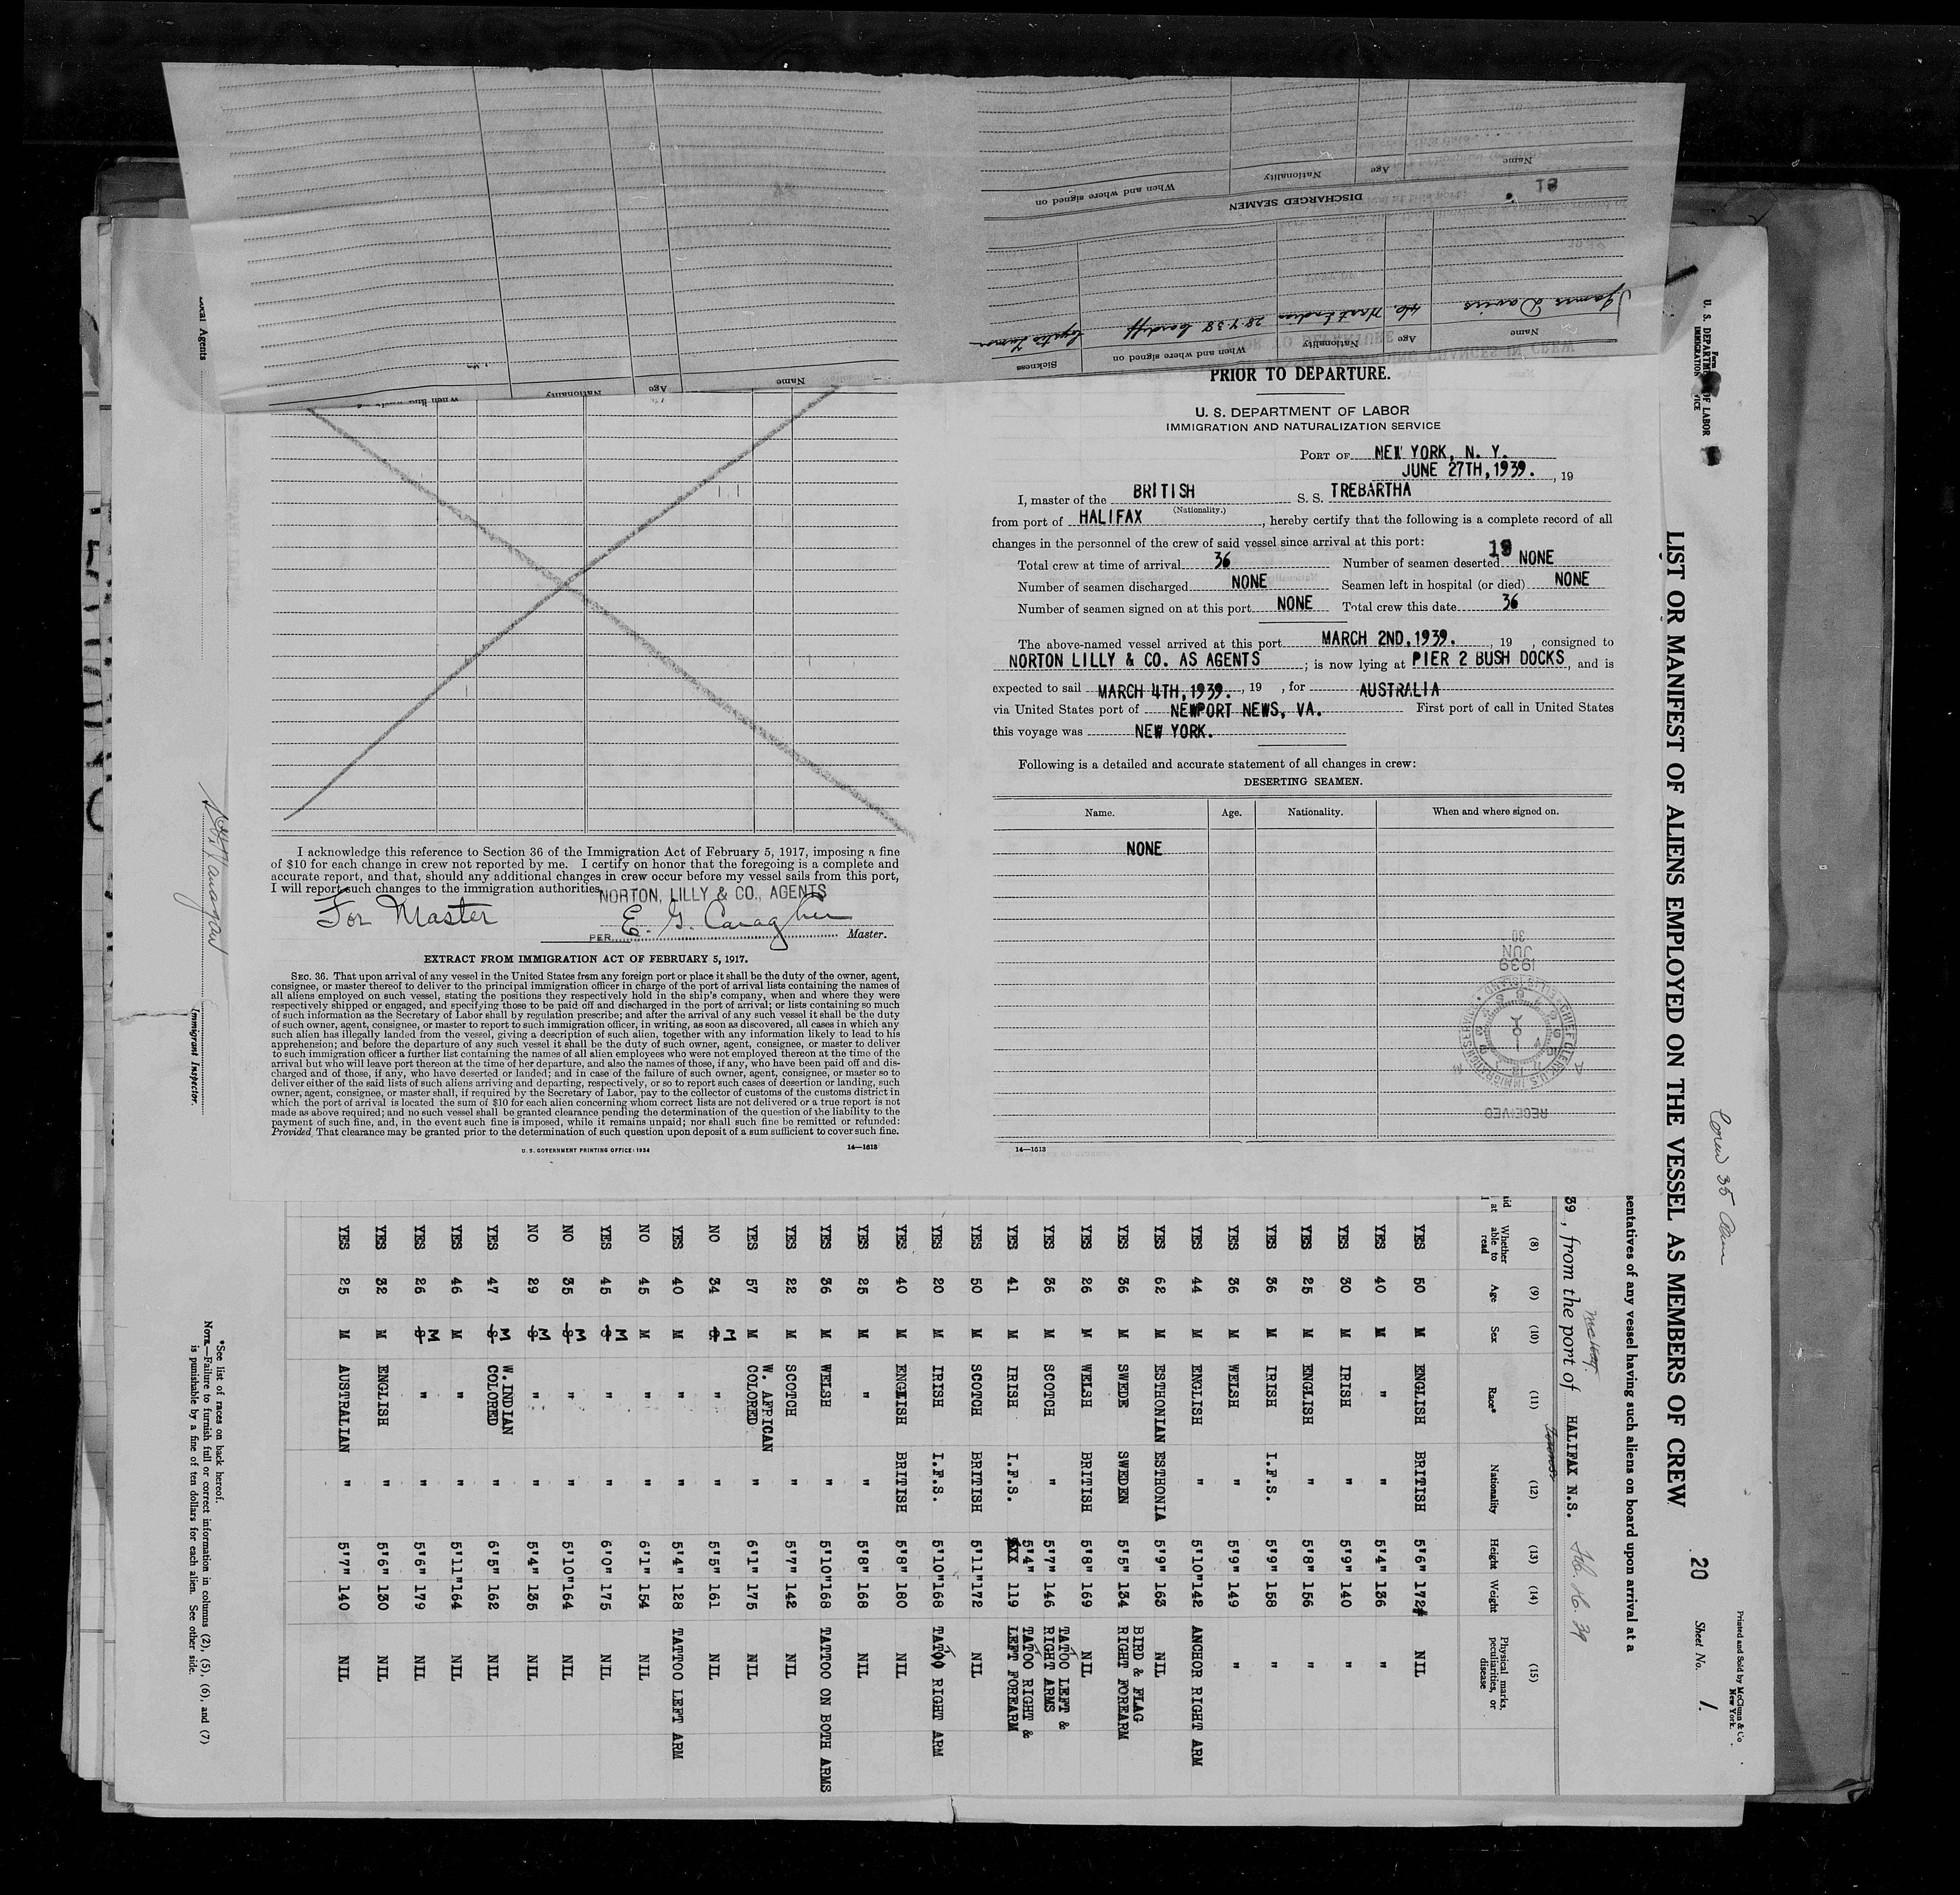 DISCHARGED SEAMEN
Name
Age
Nationality
When and where signed on
James Davies
46
28.7.38 Cardiff
Name
Age
Nationality
When and where signed on
Sickness
Name
Age
Nationality
PRIOR TO DEPARTURE.
U. S. DEPARTMENT OF LABOR
IMMIGRATION AND NATURALIZATION SERVICE
PORT OF NEW YORK, N. Y.
JUNE 27TH, 1939. , 19
I, master of the BRITISH S. S. TREBARTHA
(Nationality.)
from port of HALIFAX , hereby certify that the following is a complete record of all
changes in the personnel of the crew of said vessel since arrival at this port:
19
Total crew at time of arrival 36 Number of seamen deserted NONE
Number of seamen discharged NONE Seamen left in hospital (or died) NONE
Number of seamen signed on at this port NONE Total crew this date 36
The above-named vessel arrived at this port MARCH 2ND, 1939. , 19 , consigned to
NORTON LILLY & CO. AS AGENTS ; is now lying at PIER 2 BUSH DOCKS, and is
expected to sail MARCH 4TH, 1939. , 19 , for AUSTRALIA
via United States port of NEWPORT NEWS, VA. First port of call in United States
this voyage was NEW YORK.
Following is a detailed and accurate statement of all changes in crew:
DESERTING SEAMEN.
Name. Age. Nationality. When and where signed on.
NONE
RECEIVED
1939
JUN
30
14—1613
I acknowledge this reference to Section 36 of the Immigration Act of February 5, 1917, imposing a fine
of $10 for each change in crew not reported by me. I certify on honor that the foregoing is a complete and
accurate report, and that, should any additional changes in crew occur before my vessel sails from this port,
I will report such changes to the immigration authorities.
NORTON, LILLY & CO., AGENTS
For Master
PER E. G. Caragher Master.
EXTRACT FROM IMMIGRATION ACT OF FEBRUARY 5, 1917.
SEC. 36. That upon arrival of any vessel in the United States from any foreign port or place it shall be the duty of the owner, agent,
consignee, or master thereof to deliver to the principal immigration officer in charge of the port of arrival lists containing the names of
all aliens employed on such vessel, stating the positions they respectively hold in the ship's company, when and where they were
respectively shipped or engaged, and specifying those to be paid off and discharged in the port of arrival; or lists containing so much
of such information as the Secretary of Labor shall by regulation prescribe; and after the arrival of any such vessel it shall be the duty
of such owner, agent, consignee, or master to report to such immigration officer, in writing, as soon as discovered, all cases in which any
such alien has illegally landed from the vessel, giving a description of such alien, together with any information likely to lead to his
apprehension; and before the departure of any such vessel it shall be the duty of such owner, agent, consignee, or master to deliver
to such immigration officer a further list containing the names of all alien employees who were not employed thereon at the time of the
arrival but who will leave port thereon at the time of her departure, and also the names of those, if any, who have been paid off and dis-
charged and of those, if any, who have deserted or landed; and in case of the failure of such owner, agent, consignee, or master so to
deliver either of the said lists of such aliens arriving and departing, respectively, or so to report such cases of desertion or landing, such
owner, agent, consignee, or master shall, if required by the Secretary of Labor, pay to the collector of customs of the customs district in
which the port of arrival is located the sum of $10 for each alien concerning whom correct lists are not delivered or a true report is not
made as above required; and no such vessel shall be granted clearance pending the determination of the question of the liability to the
payment of such fine, and, in the event such fine is imposed, while it remains unpaid; nor shall such fine be remitted or refunded:
Provided, That clearance may be granted prior to the determination of such question upon deposit of a sum sufficient to cover such fine.
U. S. GOVERNMENT PRINTING OFFICE: 1934 14—1613
Local Agents
Immigrant Inspector.
Form
U. S. DEPARTMENT OF LABOR
IMMIGRATION
Printed and Sold by McClunn & Co
New York.
Sheet No. 1.
20
Crew 35 Aliens
LIST OR MANIFEST OF ALIENS EMPLOYED ON THE VESSEL AS MEMBERS OF CREW
sentatives of any vessel having such aliens on board upon arrival at a
39 , from the port of HALIFAX N.S. Feb. 26. 39
(8) (9) (10) (11) (12) (13) (14) (15)
Whether able to read Age Sex Race* Nationality Height Weight Physical marks, peculiarities, or disease
YES 50 M ENGLISH BRITISH 5'6" 172 NIL
YES 40 M " " 5'4" 136 "
YES 30 M IRISH " 5'9" 140 "
YES 25 M ENGLISH " 5'8" 156 "
YES 36 M IRISH I.F.S. 5'9" 158 "
YES 36 M WELSH " 5'9" 149 "
YES 44 M ENGLISH " 5'10" 142 ANCHOR RIGHT ARM
YES 62 M ESTHONIAN ESTHONIA 5'9" 163 NIL
YES 36 M SWEDE SWEDEN 5'5" 134 BIRD & FLAG RIGHT FOREARM
YES 26 M WELSH BRITISH 5'8" 169 NIL
YES 36 M SCOTCH " 5'7" 146 TATOO LEFT & RIGHT ARMS
YES 41 M IRISH I.F.S. 5'4" 119 TATOO RIGHT & LEFT FOREARM
YES 50 M SCOTCH BRITISH 5'11" 172 NIL
YES 20 M IRISH I.F.S. 5'10" 168 TATOO RIGHT ARM
YES 40 M ENGLISH BRITISH 5'8" 180 NIL
YES 25 M " " 5'8" 168 NIL
YES 36 M WELSH " 5'10" 168 TATTOO ON BOTH ARMS
YES 22 M SCOTCH " 5'7" 142 NIL
YES 57 M W. AFRICAN COLORED " 6'1" 175 NIL
NO 34 M " " 5'5" 161 NIL
YES 40 M " " 5'4" 128 TATTOO LEFT ARM
NO 45 M " " 6'1" 154 NIL
YES 45 M " " 6'0" 175 NIL
NO 35 M " " 5'10" 164 NIL
NO 29 M " " 5'4" 135 NIL
YES 47 M W. INDIAN COLORED " 6'5" 162 NIL
YES 46 M " " 5'11" 164 NIL
YES 26 M " " 5'6" 179 NIL
YES 32 M ENGLISH " 5'6" 130 NIL
YES 25 M AUSTRALIAN " 5'7" 140 NIL
*See list of races on back hereof.
NOTE.—Failure to furnish full or correct information in columns (2), (5), (6), and (7)
is punishable by a fine of ten dollars for each alien. See other side.